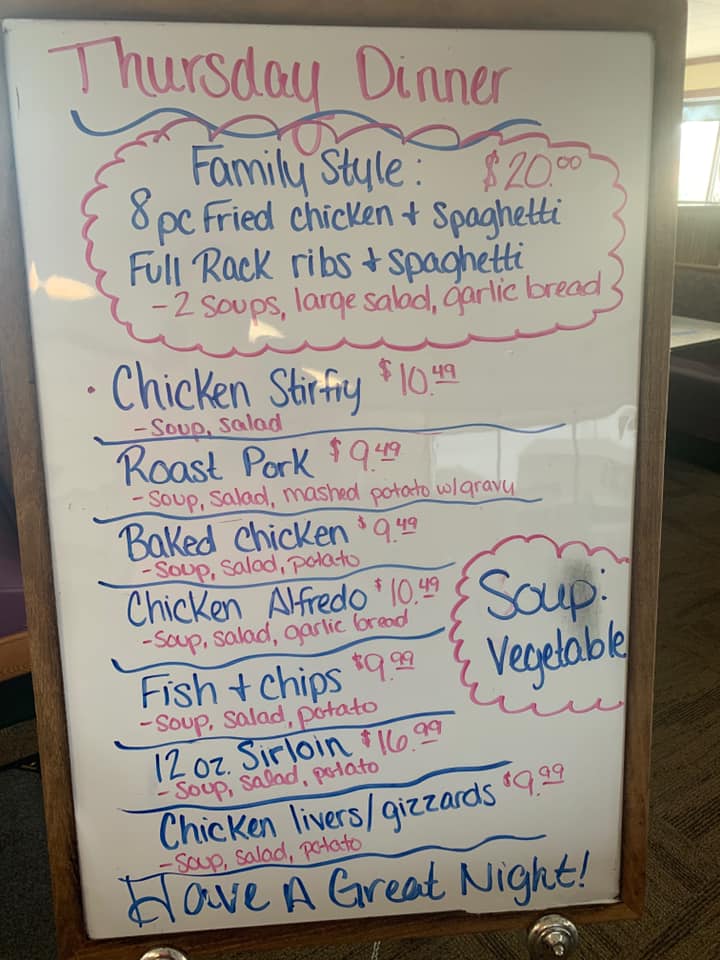 Thursday Dinner
Family Style: $20.00
8 pc Fried chicken + Spaghetti
Full Rack ribs + spaghetti
- 2 soups, large salad, garlic bread
• Chicken Stirfry $10.49
- Soup, salad
Roast Pork $9.49
- Soup, salad, mashed potato w/gravy
Baked chicken $9.49
- Soup, salad, potato
Chicken Alfredo $10.49
- Soup, salad, garlic bread
Fish + chips $9.99
- Soup, salad, potato
12 oz. Sirloin $16.99
- Soup, salad, potato
Chicken livers/gizzards $9.99
- Soup, salad, potato
Soup:
Vegetable
Have A Great Night!